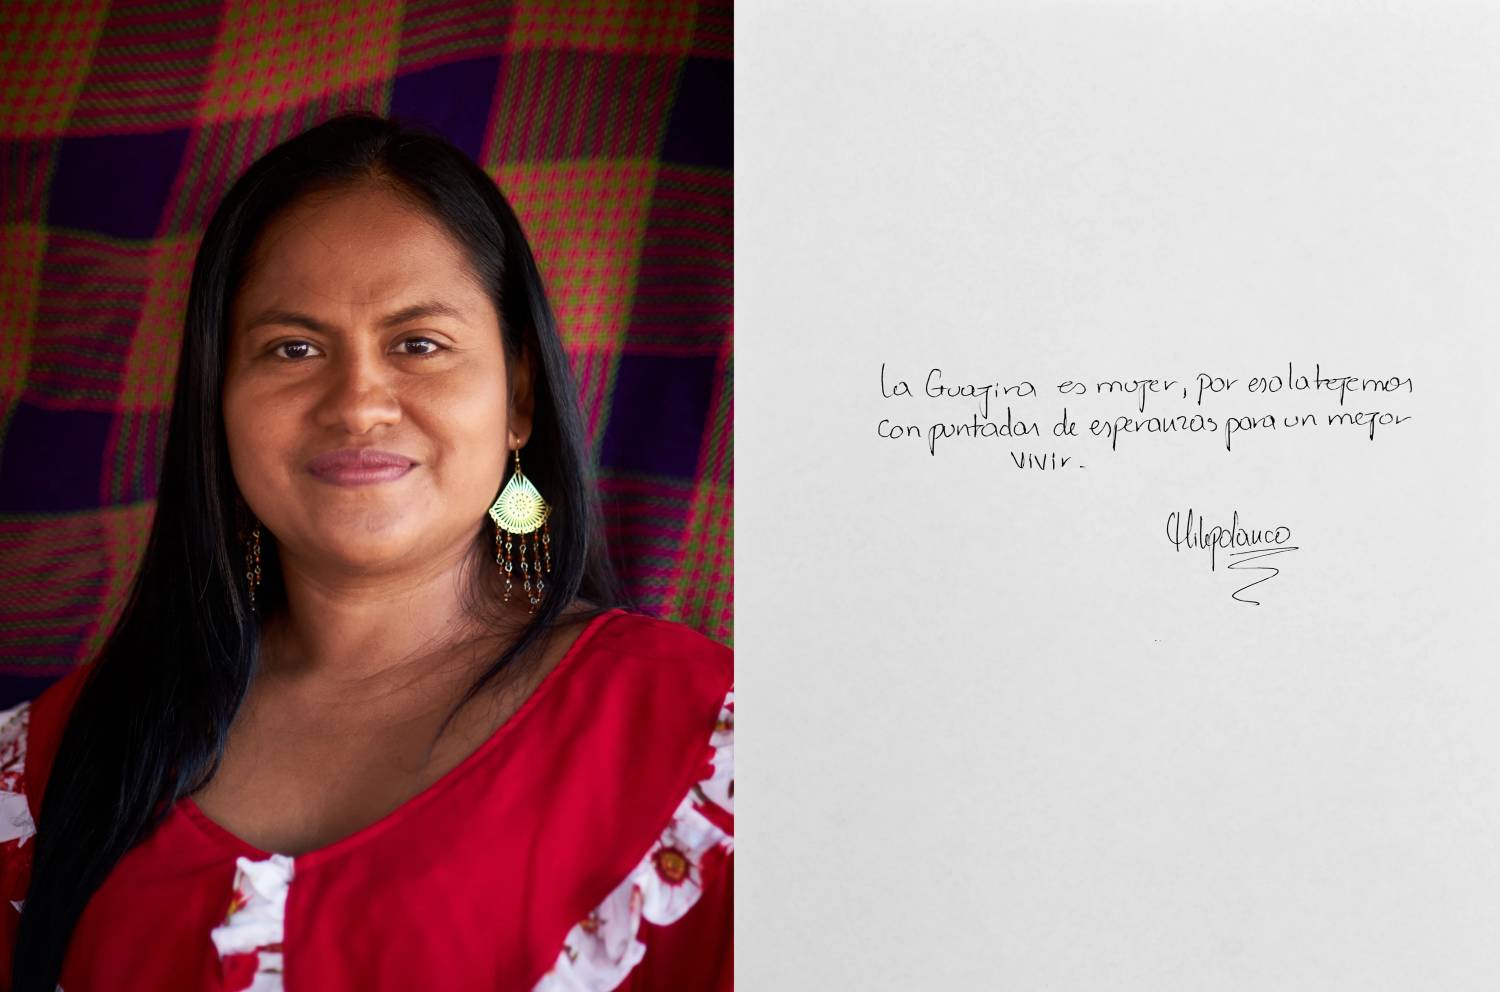 La Guajira es mujer, por eso la tejemos
con puntadas de esperanzas para un mejor
vivir.